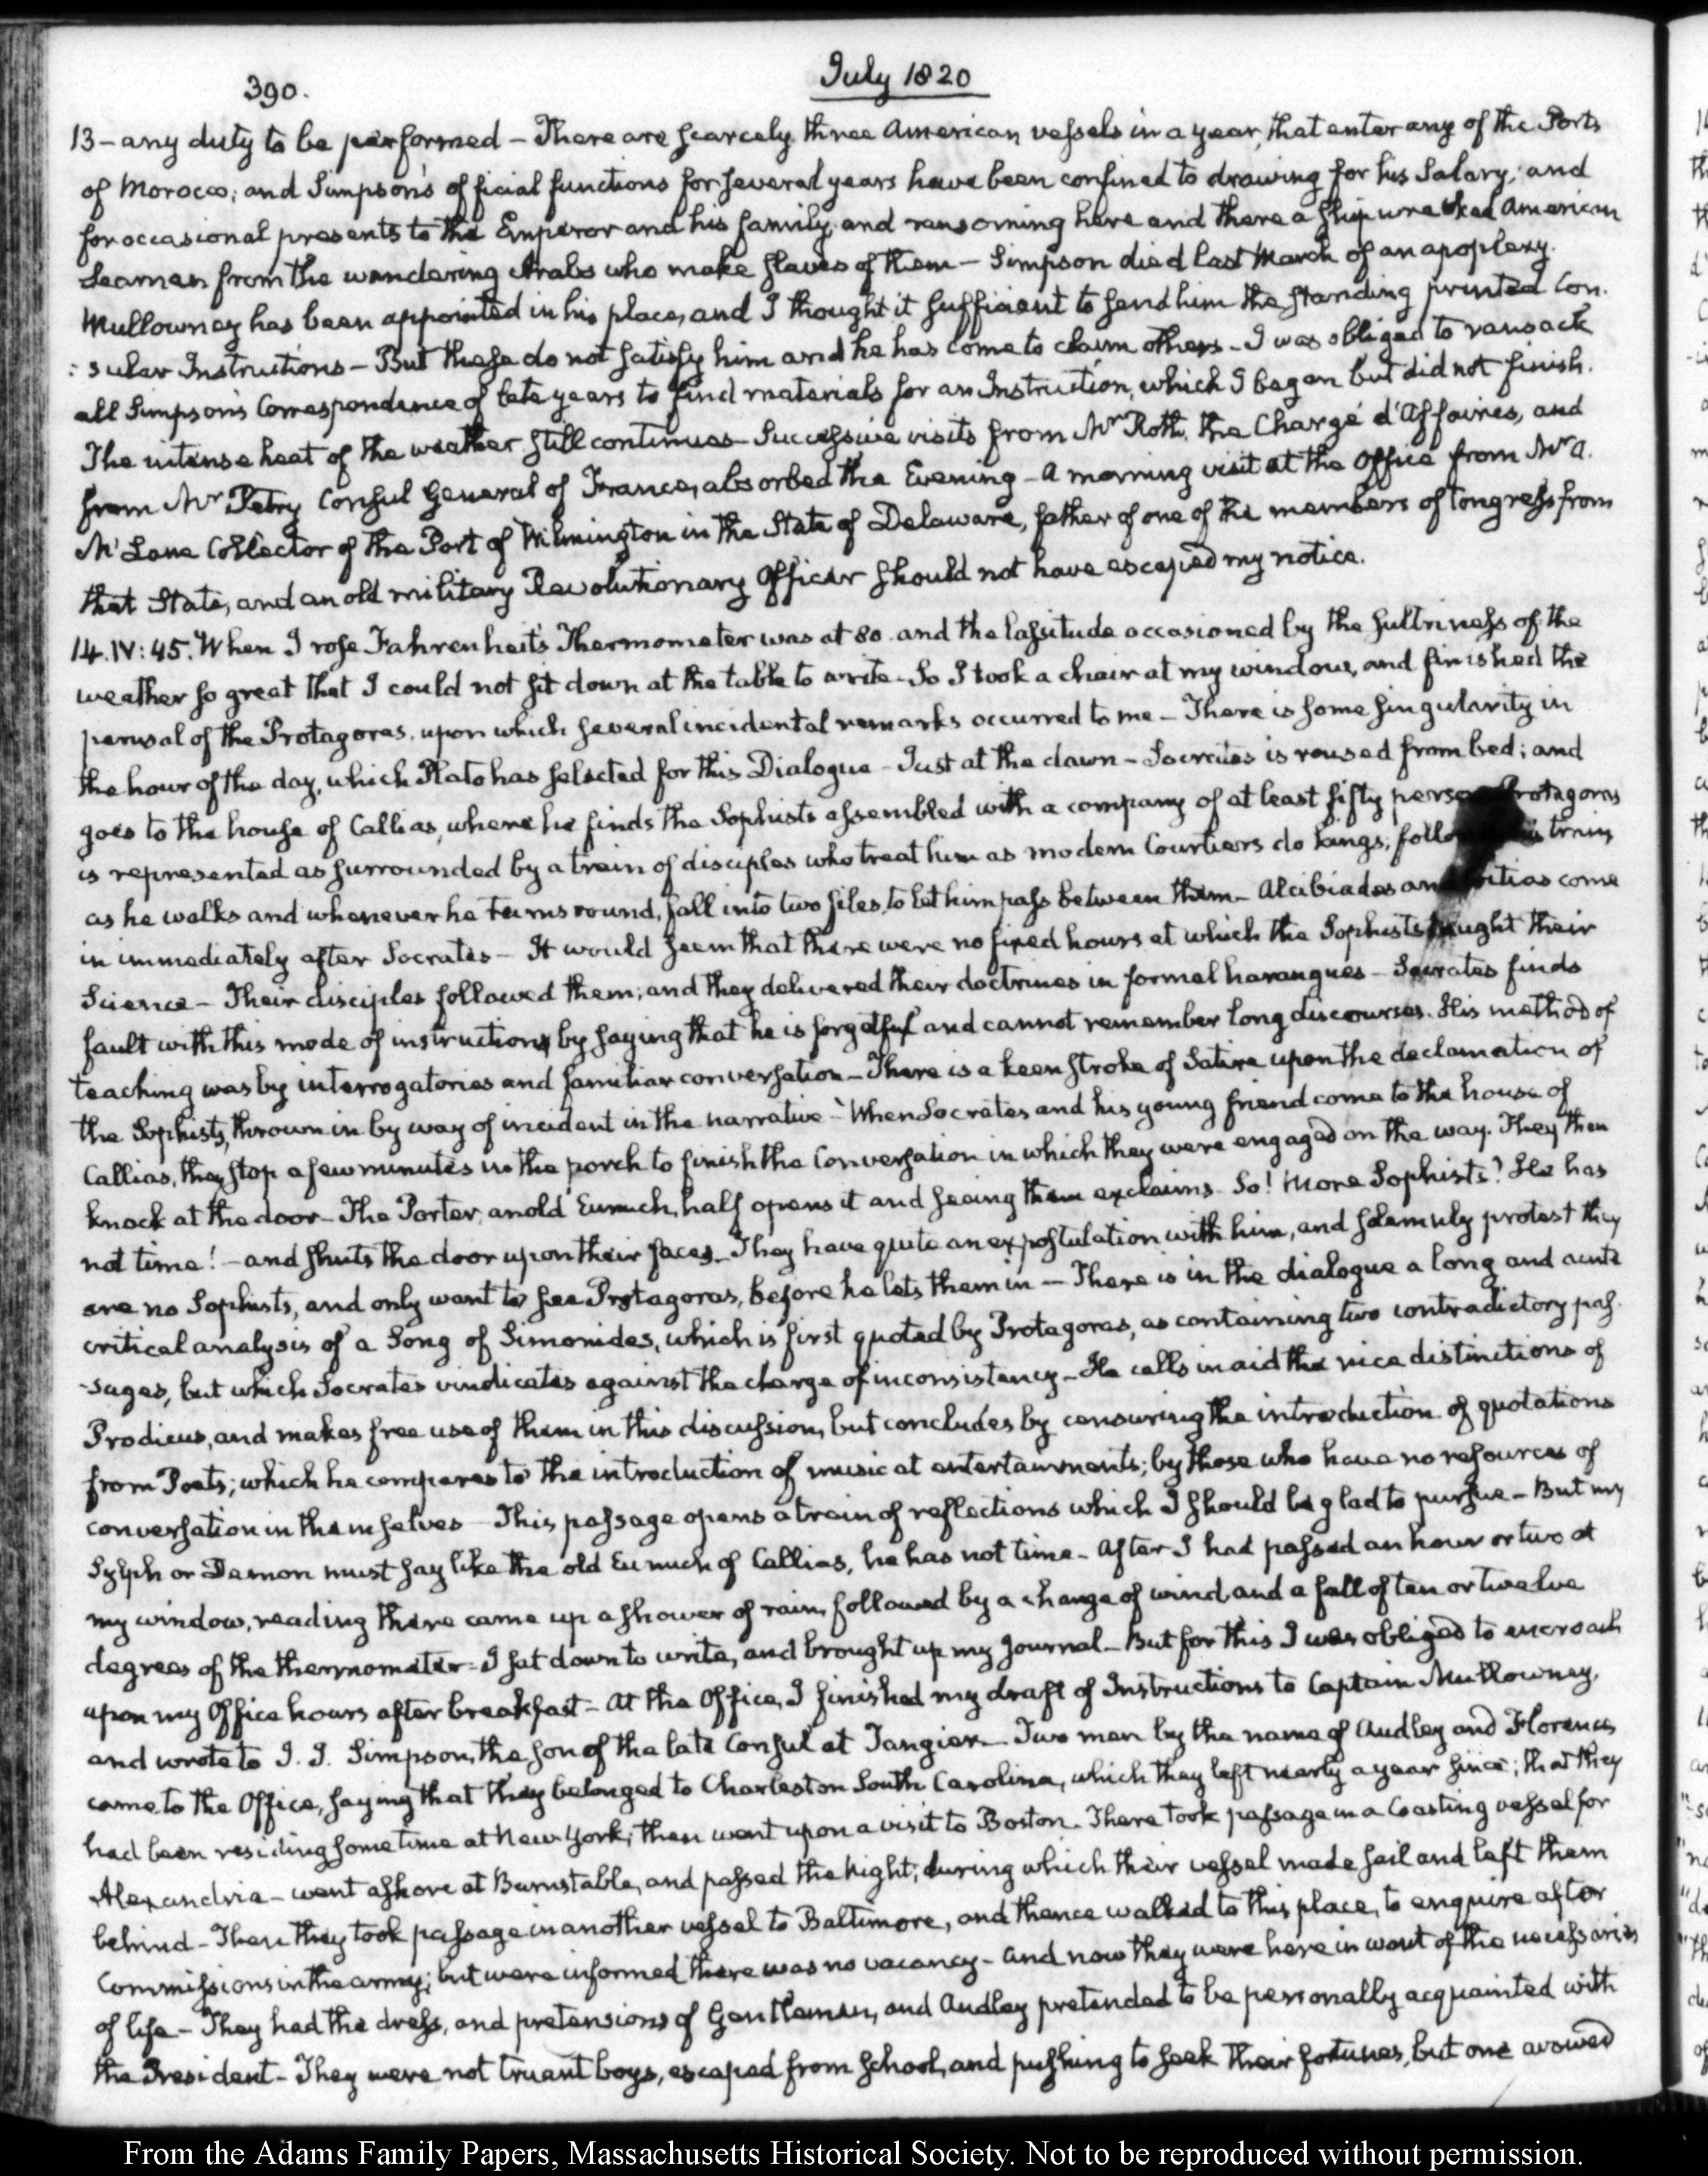 390.
July 1820
13 - any duty to be performed - There are scarcely three American vessels in a year, that enter any of the Ports
of Morocco; and Simpson's official functions for several years have been confined to drawing for his Salary; and
for occasional presents to the Emperor and his family, and ransoming here and there a shipwrecked American
Seaman from the wandering Arabs who make slaves of them - Simpson died last March of an apoplexy.
Mullowney has been appointed in his place, and I thought it sufficient to send him the standing printed Con-
:sular Instructions - But these do not satisfy him and he has come to claim others - I was obliged to ransack
all Simpson's Correspondence of late years to find materials for an Instruction, which I began but did not finish.
The intense heat of the weather still continues - Successive visits from Mr Roth, the Chargé d'Affaires, and
from Mr Petry Consul General of France, absorbed the Evening - A morning visit at the Office from Mr A.
McLane Collector of the Port of Wilmington in the State of Delaware, father of one of the members of Congress from
that State, and an old military Revolutionary Officer should not have escaped my notice.
14. IV:45. When I rose Fahrenheit's Thermometer was at 80. and the lassitude occasioned by the sultriness of the
weather so great that I could not sit down at the table to write - So I took a chair at my window, and finished the
perusal of the Protagoras, upon which several incidental remarks occurred to me - There is some singularity in
the hour of the day, which Plato has selected for this Dialogue - Just at the dawn - Socrates is roused from bed; and
goes to the house of Callias, where he finds the Sophists assembled with a company of at least fifty Protagoras
is represented as surrounded by a train of disciples who treat him as modern Courtiers do kings; train
as he walks and whenever he turns round, fall into two files, to let him pass between them - Alcibiades and Critias come
in immediately after Socrates - It would seem that there were no fixed hours at which the Sophists taught their
Science - Their disciples followed them; and they delivered their doctrines in formal harangues - Socrates finds
fault with this mode of instruction, by saying that he is forgetful and cannot remember long discourses. His method of
teaching was by interrogatories and familiar conversation - There is a keen stroke of Satire upon the declamation of
the Sophists, thrown in by way of incident in the narrative - When Socrates and his young friend come to the house of
Callias, they stop a few minutes in the porch to finish the Conversation in which they were engaged on the way. They then
knock at the door - The Porter, an old Eunuch, half opens it and seeing them exclaims - So! More Sophists! He has
not time! - and shuts the door upon their faces - They have quite an expostulation with him, and solemnly protest they
are no Sophists, and only want to see Protagoras, before he lets them in - There is in the dialogue a long and acute
critical analysis of a Song of Simonides, which is first quoted by Protagoras, as containing two contradictory pas-
-sages, but which Socrates vindicates against the charge of inconsistency - He calls in aid the nice distinctions of
Prodicus, and makes free use of them in this discussion, but concludes by censuring the introduction of quotations
from Poets; which he compares to the introduction of music at entertainments; by those who have no resources of
conversation in themselves - This passage opens a train of reflections which I should be glad to pursue - But my
Sylph or Demon must say like the old Eunuch of Callias, he has not time - After I had passed an hour or two at
my window, reading there came up a shower of rain, followed by a change of wind and a fall of ten or twelve
degrees of the thermometer - I sat down to write, and brought up my journal - But for this I was obliged to encroach
upon my Office hours after breakfast - At the Office, I finished my draft of Instructions to Captain Mullowney,
and wrote to J. J. Simpson, the son of the late Consul at Tangier - Two men by the name of Audley and Florence,
came to the Office, saying that they belonged to Charleston South Carolina, which they left nearly a year since; that they
had been residing some time at New-York; then went upon a visit to Boston. There took passage in a Coasting vessel for
Alexandria - went ashore at Barnstable, and passed the Night; during which their vessel made sail and left them
behind - Then they took passage in another vessel to Baltimore, and thence walked to this place, to enquire after
Commissions in the army; but were informed there was no vacancy - and now they were here in want of the necessaries
of life - They had the dress, and pretensions of Gentlemen, and Audley pretended to be personally acquainted with
the President - They were not truant boys, escaped from School, and pushing to seek their fortunes, but one avowed
From the Adams Family Papers, Massachusetts Historical Society. Not to be reproduced without permission.